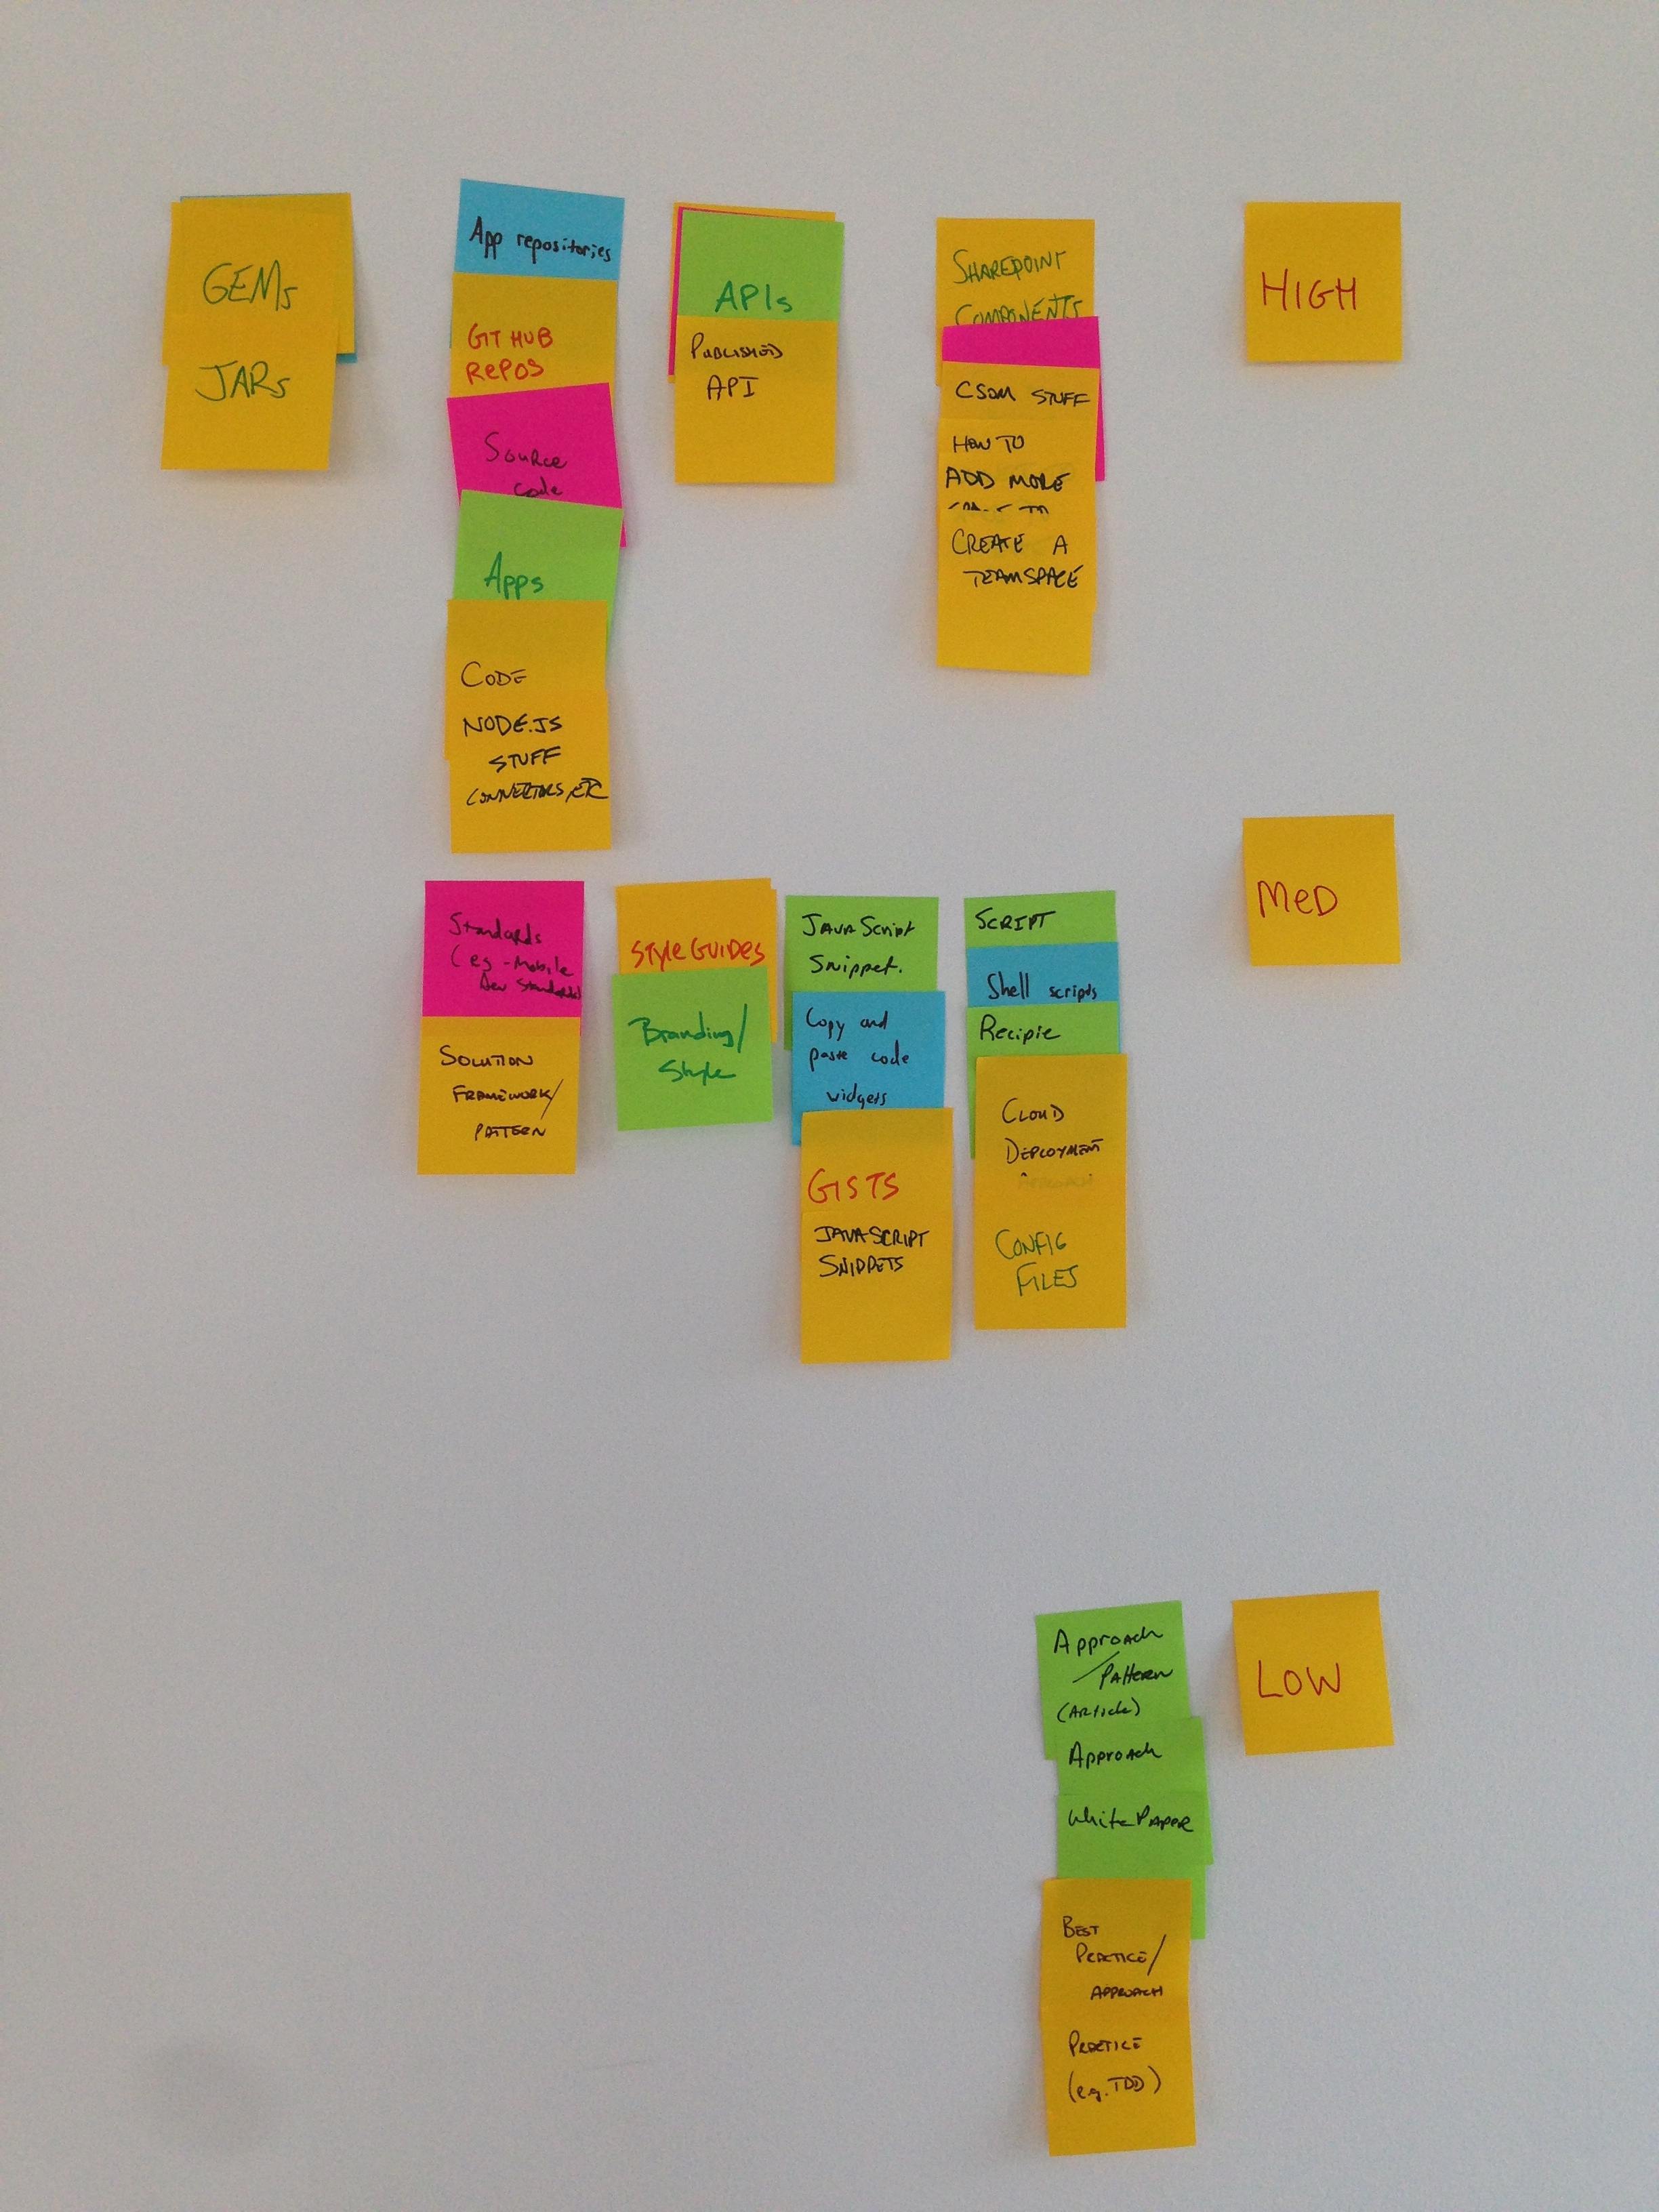 GEMs
JARs
App repositories
GITHUB
REPOS
Source
code
Apps
CODE
NODE.JS
STUFF
CONNECTORS, ETC
APIs
PUBLISHED
API
SHAREPOINT
COMPONENTS
CSOM STUFF
HOW TO
ADD MORE
CREATE A
TEAMSPACE
HIGH
Standards
(eg - Mobile
Dev Standards)
SOLUTION
FRAMEWORK/
PATTERN
STYLE GUIDES
Branding/
Style
JAVASCRIPT
Snippet.
Copy and
paste code
widgets
GISTS
JAVASCRIPT
SNIPPETS
SCRIPT
Shell scripts
Recipie
CLOUD
DEPLOYMENT
APPROACH
CONFIG
FILES
MED
Approach
/PAttern
(Article)
Approach
White PAPER
BEST
PRACTICE/
APPROACH
PRACTICE
(e.g. TDD)
LOW